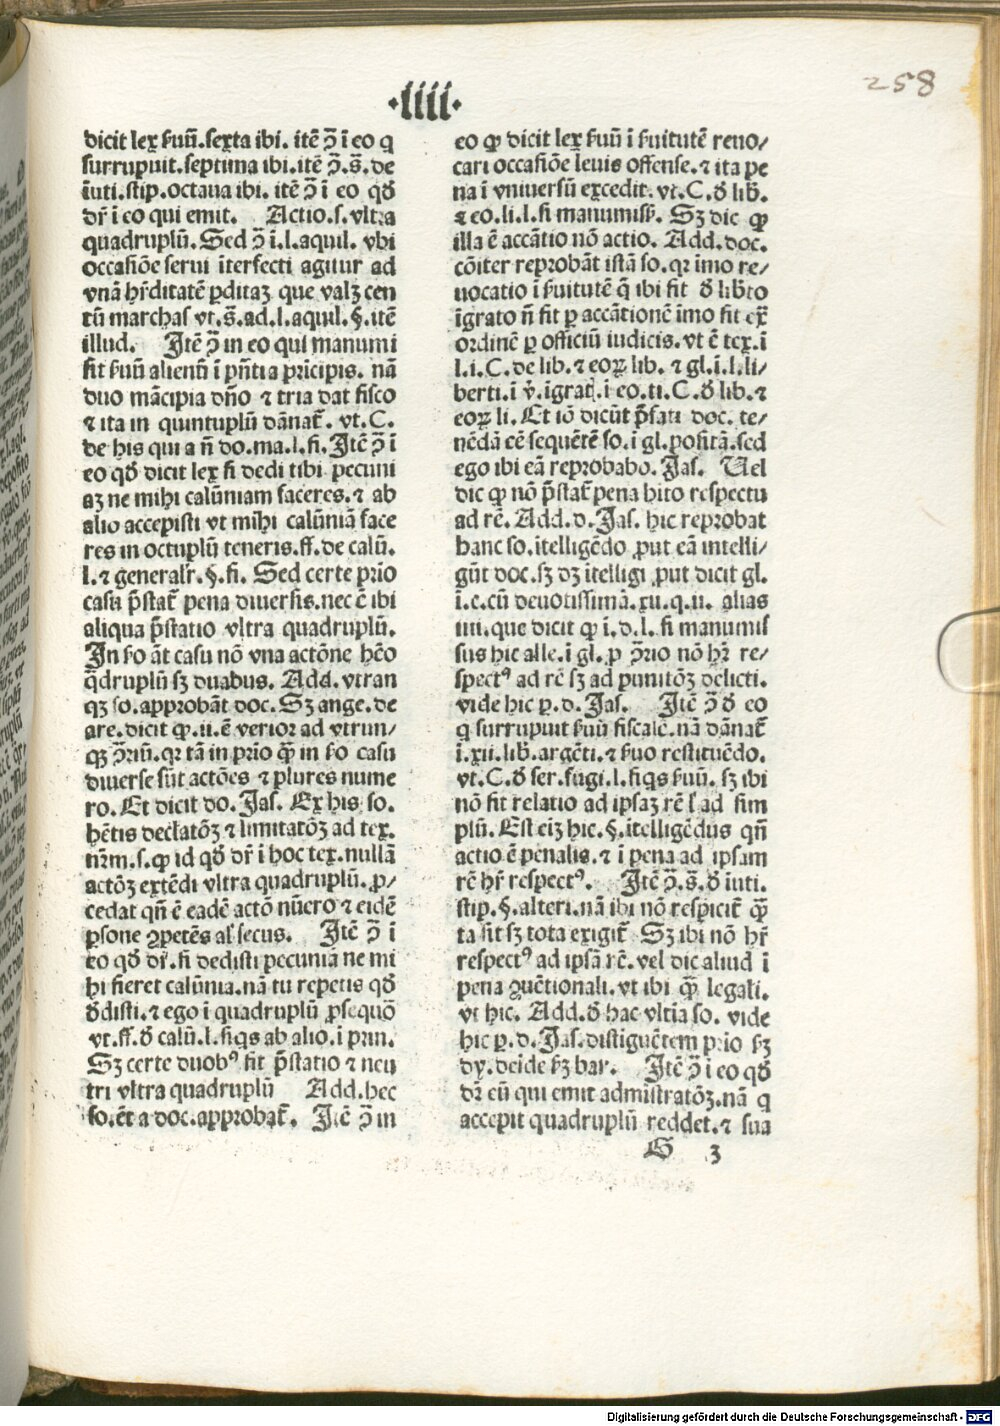 258
·liiii·
dicit lex ẜuū. sexta ibi. itē ꝯ̄ ī eo q
surrupuit. septima ibi. itē ꝯ̄. s̄. de
īuti. stip. octaua ibi. itē ꝯ̄ ī eo qď
dr̄ ī eo qui emit. Actio. s. vltra
quadruplū. Sed ꝯ̄ ī. l. aquil. vbi
occasiōe serui īterfecti agitur ad
vnā hr̄ditatē ꝑditaꝫ que valꝫ cen
tū marchas vt. s̄. ad. l. aquil. §. itē
illud. Itē ꝯ̄ in eo qui manumi
sit ẜuū alienū ī pn̄tia pricipis. nā
duo mācipia dn̄o ⁊ tria dat fisco
⁊ ita in quintuplū dānat᷒. vt. C.
de his qui a n̄ do. ma. l. fi. Itē ꝯ̄ ī
eo qď dicit lex si dedi tibi pecuni
aꝫ ne mihi calūniam faceres. ⁊ ab
alio accepisti vt mihi calūniā face
res in octuplū teneris. ff. de calū.
l. ⁊ generalr̄. §. fi. Sed certe prīo
casu p̄stat᷒ pena diuersis. nec ē ibi
aliqua p̄statio vltra quadruplū.
In ẜo āt casu nō vna actōne hēo
q̄druplū sꝫ duabus. Add. vtran
qꝫ so. approbāt doc. Sꝫ ange. de
are. dicit ꝙ. ii. ē verior ad vtrun/
qꝫ ꝯ̄riū. qr tā in prīo q̄ꝫ in ẜo casu
diuerse sūt actōes ⁊ plures nume
ro. Et dicit do. Jas. Ex his so.
hētis declatōꝫ ⁊ limitatōꝫ ad tex.
nr̄m. s. ꝙ id qď dr̄ ī hoc tex. nullā
actōꝫ extēdi vltra quadruplū. ꝓ/
cedat qn̄ ē eadē actō nūero ⁊ eidē
ꝑsone ꝯpetēs al' secus. Itē ꝯ̄ ī
eo qď dr̄. si dedisti pecuniā ne mi
hi fieret calūnia. nā tu repetis qď
ďdisti. ⁊ ego ī quadruplū ꝓsequō
vt. ff. ď calū. l. siqs ab alio. ī prin.
Sꝫ certe duobꝰ fit p̄statio ⁊ neu
tri vltra quadruplū Add. hec
so. ēt a doc. approbat᷒. Itē ꝯ̄ in
eo ꝙ dicit lex ẜuū ī ẜuitutē reuo/
cari occasiōe leuis offense. ⁊ ita pe
na ī vniuersū excedit. vt. C. ď lib̄.
⁊ eo. li. l. si manumiss̄. Sꝫ dic ꝙ
illa ē accātio nō actio. Add. doc.
cōiter reprobāt istā so. qr īmo re/
uocatio ī ẜuitutē q̄ ibi fit ď lib̄to
īgrato n̄ fit ꝑ accātionē īmo fit ex̄
ordinē ꝑ officiū iudicis. vt ē tex. ī
l. i. C. de lib. ⁊ eoꝝ lib. ⁊ gl. ī. l. li/
berti. ī v̄. īgrati. ī eo. ti. C. ď lib. ⁊
eoꝝ li. Et iō dicūt p̄fati doc. te/
nēdā eē sequētē so. ī gl. positā. sed
ego ibi eā reprobabo. Jas. Uel
dic ꝙ nō p̄stat᷒ pena hīto respectu
ad rē. Add. d. Jas. hic reprobat
hanc so. ītelligēdo ꝓut eā intelli/
gūt doc. sꝫ dꝫ ītelligi ꝓut dicit gl.
ī. c. cū deuotissimā. xii. q. ii. alias
iiii. que dicit ꝙ ī. d. l. si manumis
sus hic alle. ī gl. ꝑ ꝯ̄rio nō hr̄ re/
spectꝰ ad rē sꝫ ad punitōꝫ delicti.
vide hic ꝑ. d. Jas. Itē ꝯ̄ ď eo
q surrupuit ẜuū fiscalē. nā dānat᷒
ī. xii. lib̄. argēti. ⁊ ẜuo restituēdo.
vt. C. ď ser. fugi. l. siqs ẜuū. sꝫ ibi
nō fit relatio ad ipsaꝫ rē ł ad sim
plū. Est eiꝫ hic. §. ītelligēdus qn̄
actio ē penalis. ⁊ ī pena ad ipsam
rē hr̄ respectꝰ. Itē ꝯ̄. s̄. ď īuti.
stip. §. alteri. nā ibi nō respicit᷒ q̄ꝫ
ta sit sꝫ tota exigit᷒ Sꝫ ibi nō hr̄
respectꝰ ad ipsā rē. vel dic aliud ī
pena ꝯuētionali. vt ibi q̄ꝫ legali.
vt hic. Add. ď hac vltīa so. vide
hic ꝑ. d. Jas. distiguētem prio ẜꝫ
dy. deīde ẜꝫ bar. Itē ꝯ̄ ī eo qď
dr̄ eū qui emit admistratōꝫ. nā q
accepit quadruplū reddet. ⁊ sua
G 3
Digitalisierung gefördert durch die Deutsche Forschungsgemeinschaft - DFG